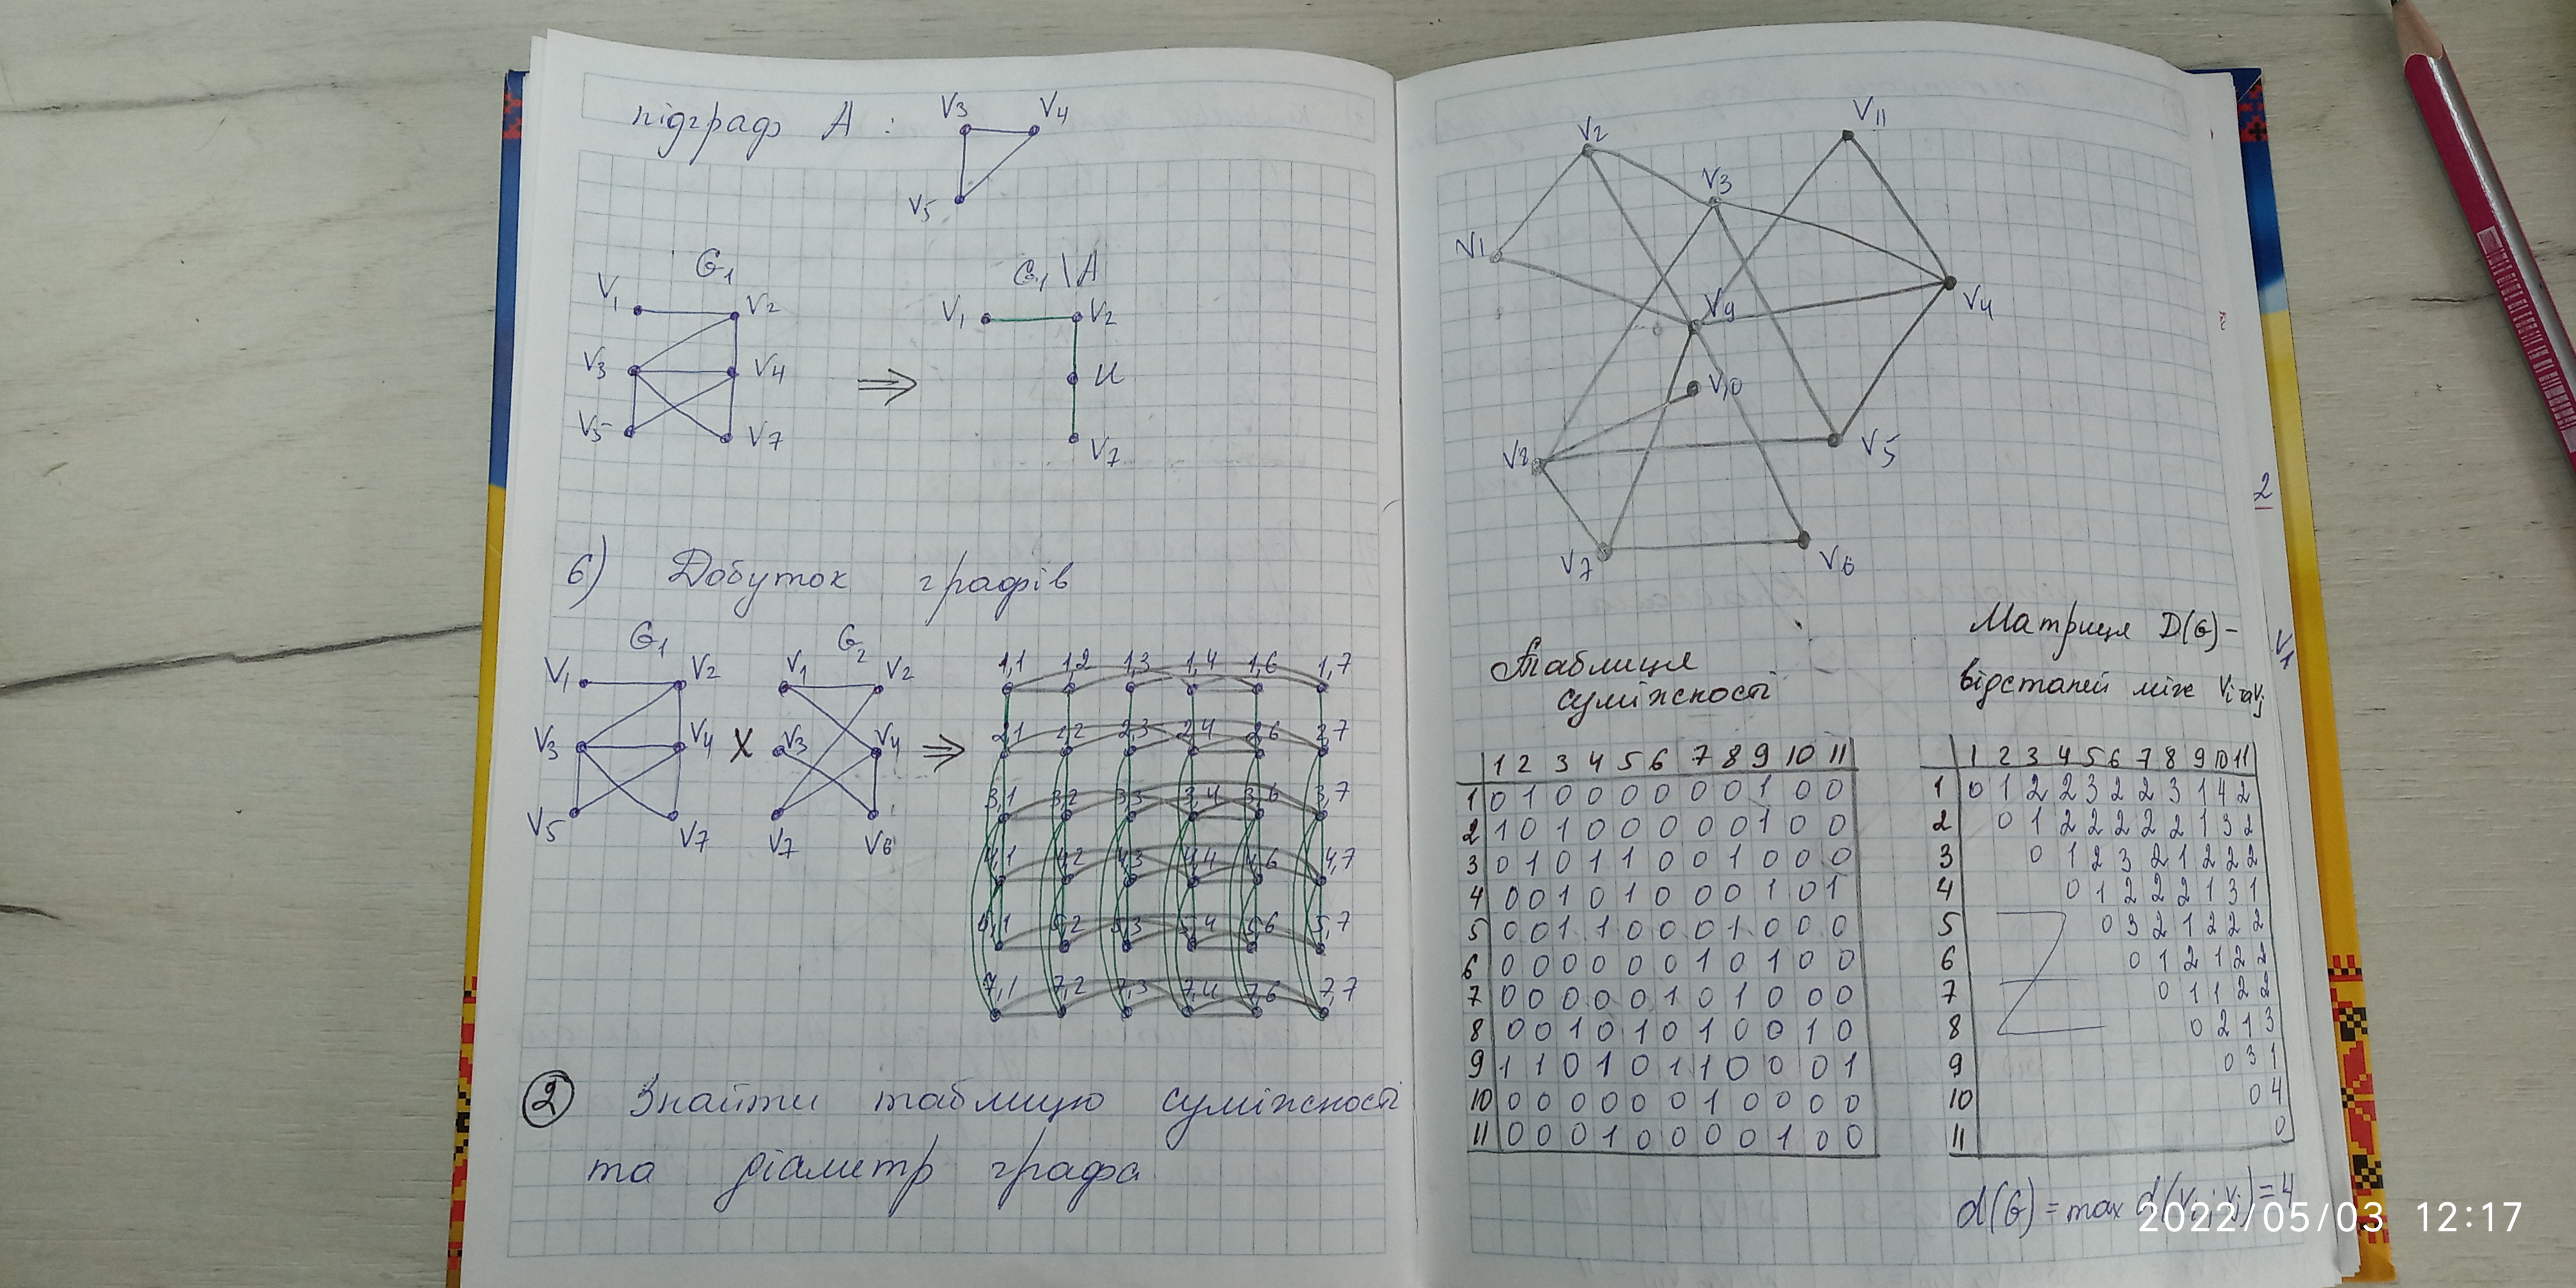 підграф А :
V3 V4
V5
G1
V1 V2
V3 V4
V5 V7
⇒
G1 \ A
V1 V2
U
V7
6) Добуток графів
G1 G2
V1 V2 V1 V2
V3 V4 X V3 V4 ⇒
V5 V7 V7 V6
1,1 1,2 1,3 1,4 1,6 1,7
2,1 2,2 2,3 2,4 2,6 2,7
3,1 3,2 3,3 3,4 3,6 3,7
4,1 4,2 4,3 4,4 4,6 4,7
5,1 5,2 5,3 5,4 5,6 5,7
7,1 7,2 7,3 7,4 7,6 7,7
② Знайти таблицю суміжності
та діаметр графа
V2 V11
V3
V1
V9 V4
V10
V8 V5
V7 V6
Таблиця
суміжності
1 2 3 4 5 6 7 8 9 10 11
1 0 1 0 0 0 0 0 0 1 0 0
2 1 0 1 0 0 0 0 0 1 0 0
3 0 1 0 1 1 0 0 1 0 0 0
4 0 0 1 0 1 0 0 0 1 0 1
5 0 0 1 1 0 0 0 1 0 0 0
6 0 0 0 0 0 0 1 0 1 0 0
7 0 0 0 0 0 1 0 1 0 0 0
8 0 0 1 0 1 0 1 0 0 1 0
9 1 1 0 1 0 1 1 0 0 0 1
10 0 0 0 0 0 0 1 0 0 0 0
11 0 0 0 1 0 0 0 0 1 0 0
Матриця D(G)-
відстаней між Vi та Vj
1 2 3 4 5 6 7 8 9 10 11
1 0 1 2 2 3 2 2 3 1 4 2
2 0 1 2 2 2 2 2 1 3 2
3 0 1 2 3 2 1 2 2 2
4 0 1 2 2 2 1 3 1
5 0 3 2 1 2 2 2
6 0 1 2 1 2 2
7 0 1 1 2 2
8 0 2 1 3
9 0 3 1
10 0 4
11 0
d(G) = max d(Vi; Vj) = 4
2
V1
2022/05/03 12:17